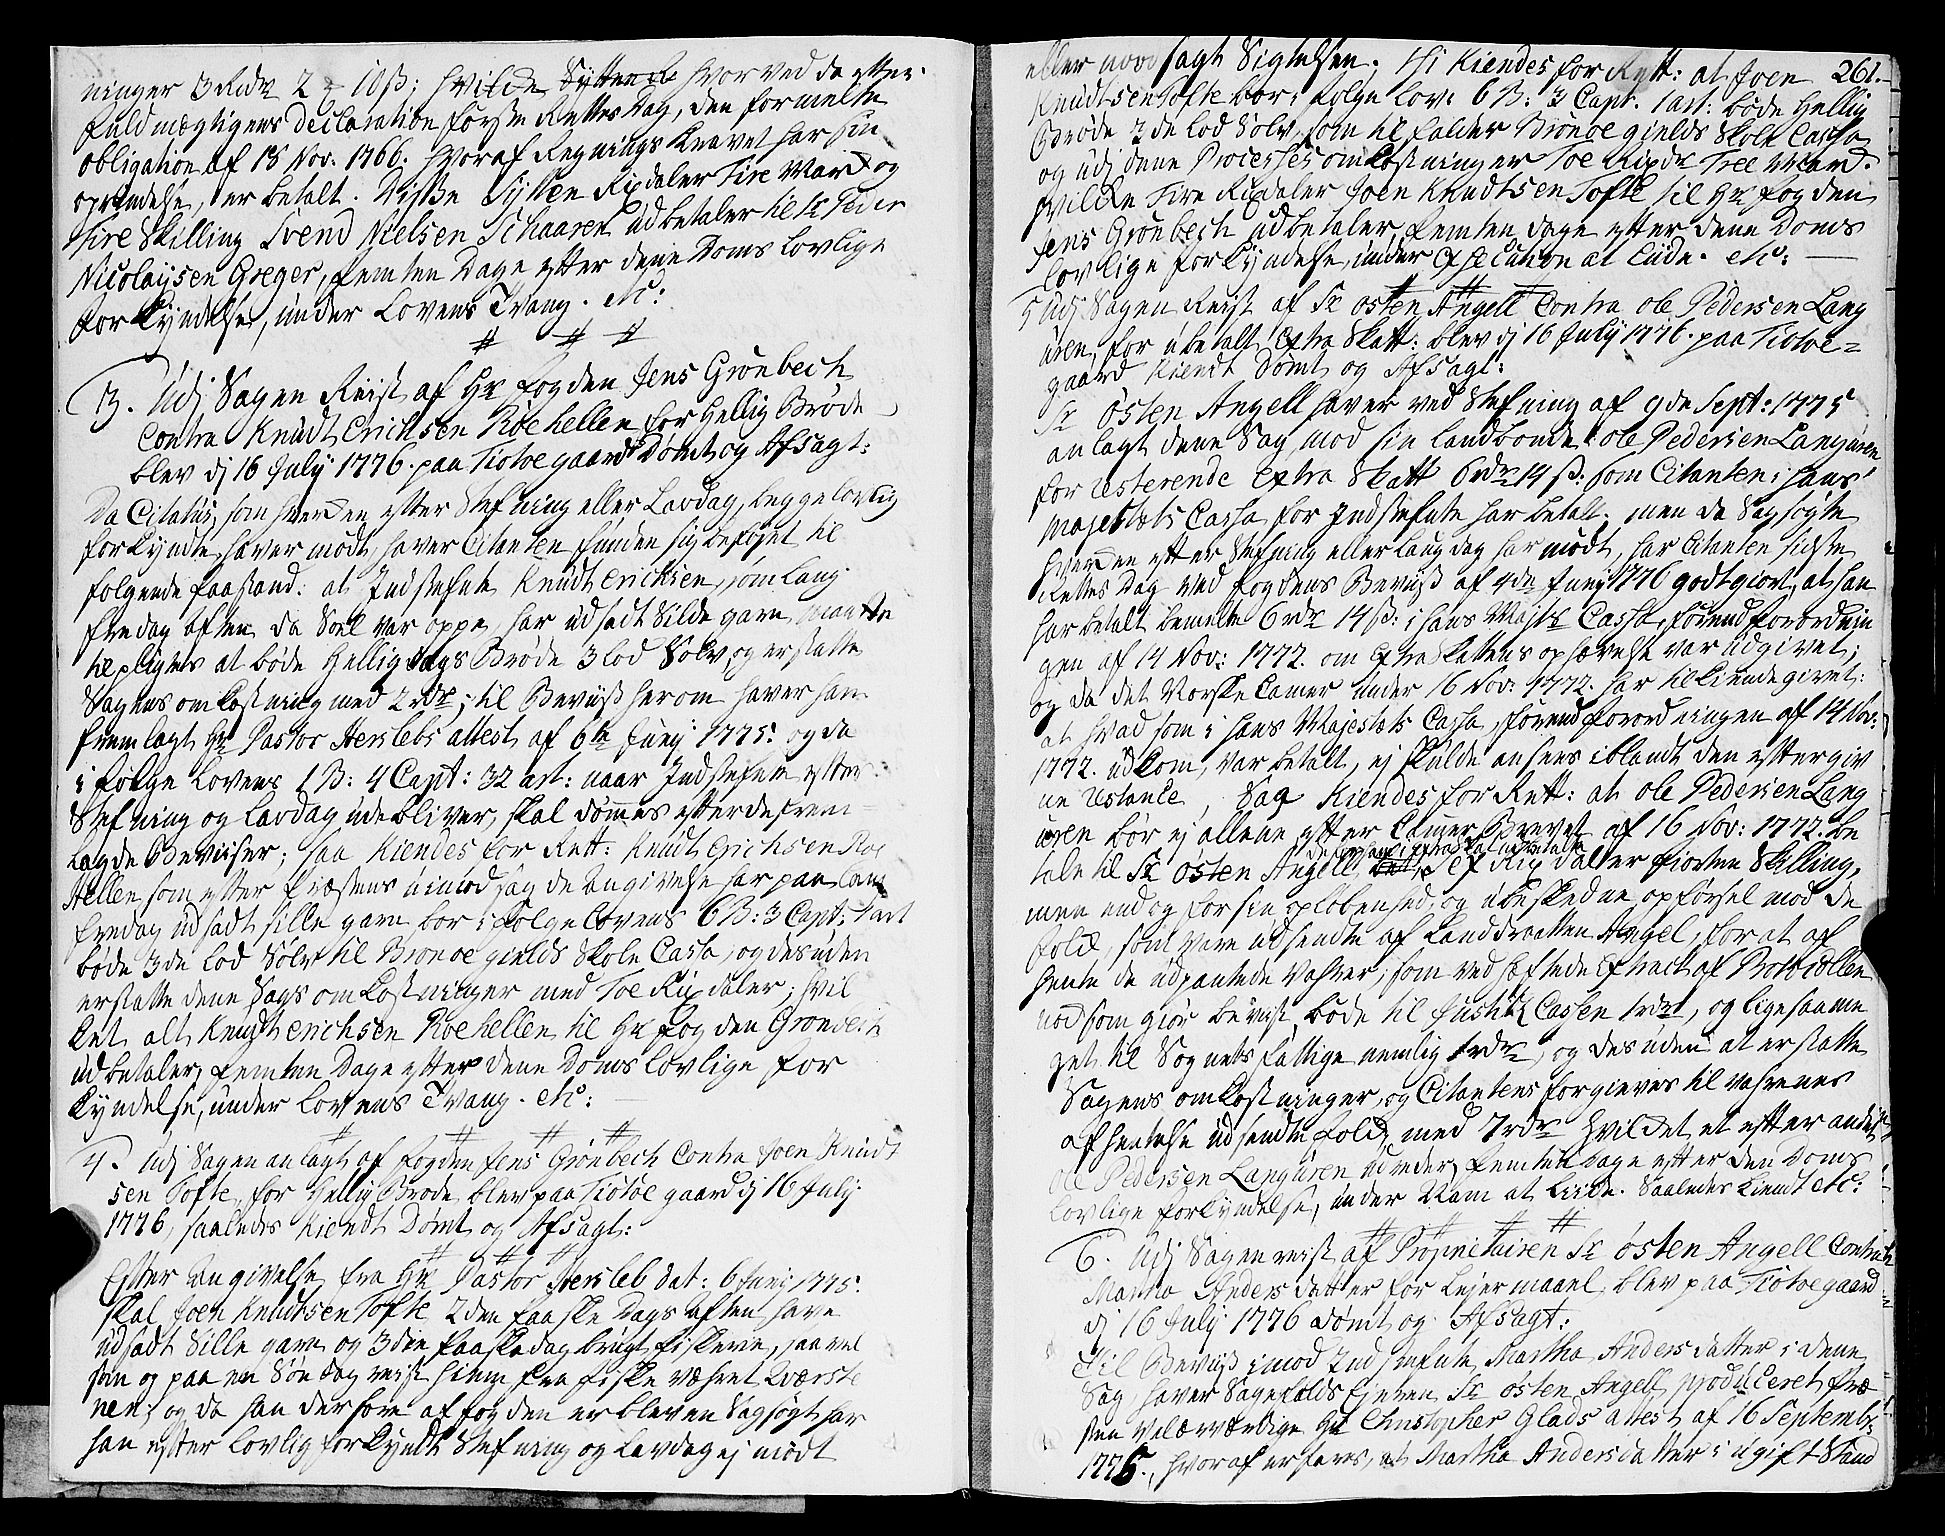 ninger 3 Rdr 2 # 10 ß; hvilke Sytten de hvorved de efter
fuldmægtigens declaration første Rettes Dag, den formelte
obligation af 18 Nov: 1766. hvoraf Regnings Kravet har sin
oprindelse, er betalt. Disse Sytten Rixdaler Fire Mark og
fire Skilling Svend Nielsen Schaaren udbetaler til Sr Peder
Nicolaysen Greger, femten Dage efter dene Doms lovlige
forkyndelse, under Lovens Tvang. etc:
# # #
13. Udj Sagen Reist af Hr fogden Jens Grønbech
Contra Knudt Erichsen Roehellen for Hellig Brøde
blev dj 16 July 1776. paa Tiotøe gaard Dømt og Afsagt:
Da Citatus, som hverken efter Stefning eller Lavdag, begge lovlig
forkyndte, haver mødt, haver Citanten funden sig beføyet til
følgende paastand: at Indstefnte Knudt Ericksen, som lang
fredag aften da Soel var oppe, har udsadt Silde garn maatte
tilpligtes at bøde Hellig dags Brøde 3 lod Sølv, og erstatte
Sagens omkostning med 2 rdr; til Beviiß herom haver han
fremlagt Hr Pastor Herslebs attest af 6te Junj 1775. og da
i følge lovens 1 B: 4 Capt: 32 art: naar Indstefnte efter
Stefning og lavdag udebliver, skal dømmes efter de frem=
lagde Beviiser; saa Kiendes for Rett: Knudt Erichsen Roe
Hellen som efter Præstens uimodsagde angivelse har paa lang
fredag udsadt sille garn bør i følge lovens 6 B: 3 Capt: 1 art
bøde 3de lod Sølv til Brønøe gields Skole Cassa, og desuden
erstatte dene Sags omkostninger med Toe Rixdaler; hvil
ket alt Knudt Erichsen Roehellen til Hr fogden Grønbech
udbetaler, femten Dage efter dene Doms lovlige for
kyndelse, under Lovens Tvang. etc:
# # # #
4. Udj Sagen anlagt af fogden Jens Grønbech Contra Joen Knudt
sen Tofte, for Hellig Brøde, blev paa Tiotøe gaard dj 16 July
1776, saaledes Kiendt Dømt og Afsagt:
# # #
Efter Angivelse fra Hr Pastor Hersleb dat: 6 Junj 1775.
skal Joen Knudtsen Tofte 2den Paaske Dags Aften have
udsadt Sille garn og 3die Paaske dag brugt fiskerie, saavel
som og paa en Søndag reist hiem fra fiske været
nen; og da han derfore af fogden er bleven Sagsøgt har
han efter lovlig forkyndt Stefning og lavdag ej mødt
eller modsagt Sigtelsen; Thi Kiendes for Rett: at Joen 261.
Knudtsen Tofte bør i følge lov: 6 B: 3 Capt. 1 art: bøde Hellig
Brøde 3de lod Sølv, som tilfalder Brønøe gields Skole Cassa
og udj dene Processes omkostninger Toe Rixdr Tree Mark.
hvilke fire Rixdaler Joen Knudtsen Tofte til Hr fogden
Jens Grønbech udbetaler, femten dage efter dene Doms
lovlige forkyndelse, under Execution at lide. etc:
# # #
5 Udj Sagen Reist af Sr Østen Angell Contra ole Pedersen Lang
uren, for ubetalt Extra Skatt: blev dj 16 July 1776. paa Tiotøe=
gaard Kiendt Dømt og Afsagt:
Sr Østen Angell haver ved Stefning af 9de Sept: 1775
anlagt dene Sag, mod sin landbonde ole Pedersen Languren
for resterende Extra Skatt 6 rdr 14 ß: som Citanten i hans
Majestæts Cassa for Indstefnte har betalt; men da Sagsøgte
hverken efter Stefning eller laugdag har mødt, har Citanten sidste
Rettes Dag ved fogdens Beviiß af 4de Junj 1776 godtgiort, at han
har betalt bemelte 6 rdr 14 ß: i hans Majts Cassa, førend forordnin
gen af 14 Nov: 1772. om Extra Skattens ophævelse var udgivet;
og da det Norske Camer under 16 Nov: 1772. har tilkiendegivet:
at hvad som i hans Majestæts Cassa, førend forordningen af 14 Nov:
1772. udkom, var betalt, ej skulde ansees iblandt den eftergiv
ne Restance, Saa Kiendes for Rett: at ole Pedersen Lang
uren bør ej allene efter Camer Brevet af 16 Nov: 1772. be
tale til Sr Østen Angell, Sex Rixdaler fiorten Skilling,
men endog for sin opløbenhed, og ubeskedne opførsel mod de
folk, som vare udsendte af Landdrotten Angel, for at af
hente de udpantede vahrer, som ved hæftede Extract af Protocollen
nodsom giør beviist, bøde til Justitz Cassen 1 rdr, og lige saame
get til Sognets fattige nemlig 1 rdr, og desuden at erstatte
Sagens omkostninger, og Citantens forgieves til vahrenes
afhentelse udsendte folk, med 7 rdr hvilket et efter andet
ole Pedersen Languren udreder, femten Dage efter den Doms
lovlige forkyndelse, under Nam at liide. Saaledes kiendt etc:
# # # #
6. Udj Sagen reist af Proprietairen Sr Østen Angell Contra
Martha Anders datter for Lejermaal, blev paa Tiotøe gaard
dj 16 July 1776 dømt og Afsagt:
Til Beviiß imod Indstefnte Martha Andersdatter i dene
Sag, haver Sagefalds Ejeren Sr Østen Angell produceret Præ
sten Velærværdige Hr Christopher Glads attest af 16 Septembr
1775., hvoraf erfares, at Martha Andersdatter i ugift Stand